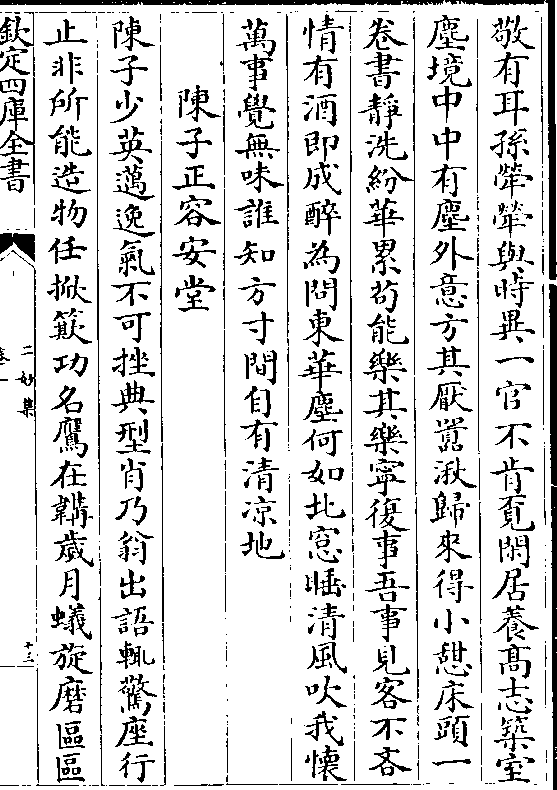 敬有耳孫犖犖與時異一官不肯覔閑居養髙志築室
塵境中中有塵外意方其厭囂湫歸來得小憩床頭一
卷書靜洗紛華累茍能樂其樂寜復事吾事見客不吝
情有酒即成醉為問東華塵何如北窓睡清風吹我懷
萬事覺無味誰知方寸間自有清凉地
陳子正容安堂
陳子少英邁逸氣不可挫典型肖乃翁出語輒驚座行
止非所能造物任掀簸功名鷹在韝歲月蟻旋磨區區
欽定四庫全書
二妙集
卷一
十三